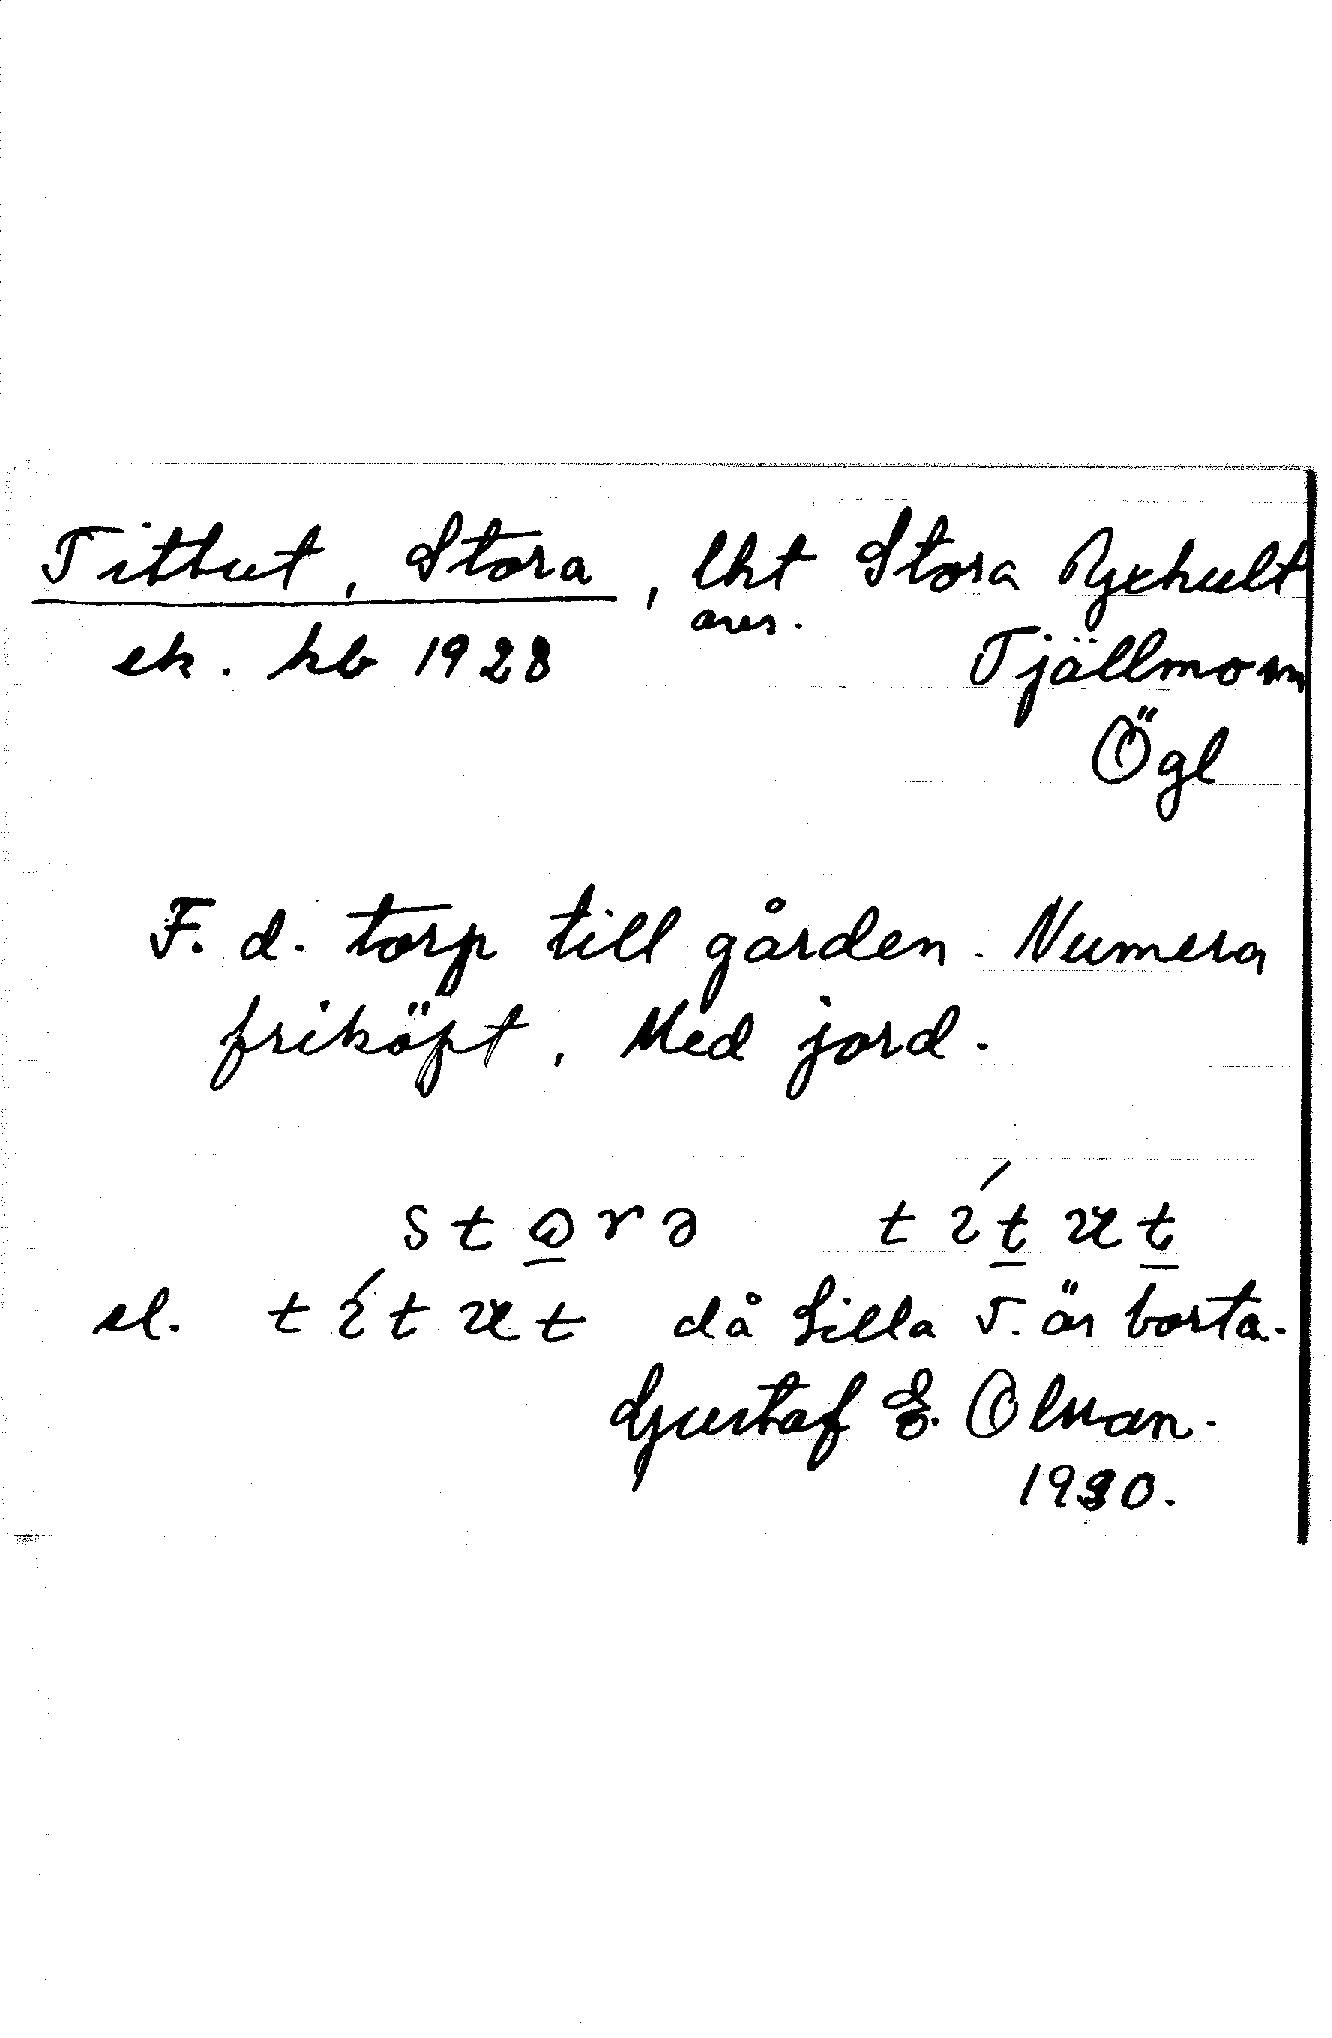 Tittut, Stora, lht Stora Ryckult
aves.
ek. kb 1928 Tjällmo sn
Ögl
F. d. torp till gården. Numera
friköpt. Med jord.
stora títut
el. títut då Lilla T. är borta.
Gustaf E. Olsson.
1930.